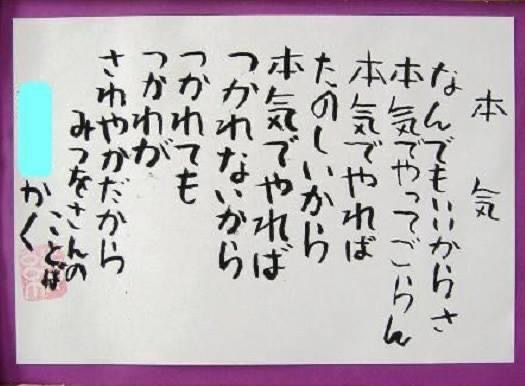 本気
なんでもいいからさ
本気でやってごらん
本気でやれば
たのしいから
本気でやれば
つかれないから
つかれても
つかれが
さわやかだから
みつをさんの
ことば
かく